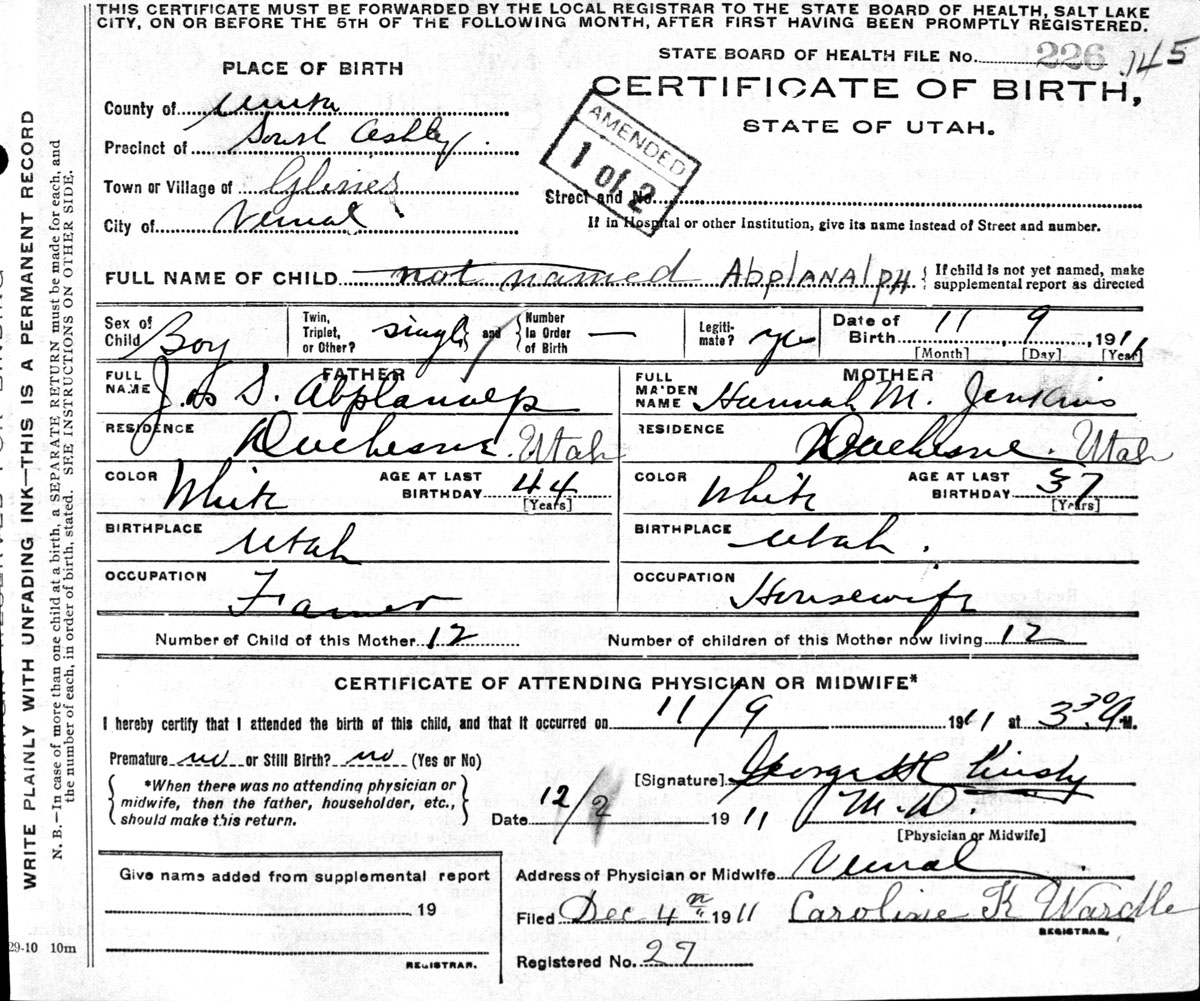 THIS CERTIFICATE MUST BE FORWARDED BY THE LOCAL REGISTRAR TO THE STATE BOARD OF HEALTH, SALT LAKE
CITY, ON OR BEFORE THE 5TH OF THE FOLLOWING MONTH, AFTER FIRST HAVING BEEN PROMPTLY REGISTERED.
STATE BOARD OF HEALTH FILE No. 226 145
PLACE OF BIRTH
CERTIFICATE OF BIRTH,
STATE OF UTAH.
AMENDED
1 of 2
County of Uinta
Precinct of South Ashley
Town or Village of Glines
Street and No.
City of Vernal
If in Hospital or other Institution, give its name instead of Street and number.
FULL NAME OF CHILD not named AbplanalpH { If child is not yet named, make
supplemental report as directed
Sex of Child Boy
Twin, Triplet, or Other? single and { Number in Order of Birth —
Legitimate? yes
Date of Birth 11 9, 1911
[Month] [Day] [Year]
FATHER
FULL NAME Jos S. Abplanalp
RESIDENCE Duchesne. Utah
COLOR White AGE AT LAST BIRTHDAY 44
[Years]
BIRTHPLACE Utah
OCCUPATION Farmer
MOTHER
FULL MA'DEN NAME Hannah M. Jenkins
RESIDENCE Duchesne. Utah
COLOR White AGE AT LAST BIRTHDAY 37
[Years]
BIRTHPLACE Utah.
OCCUPATION Housewife
Number of Child of this Mother 12 Number of children of this Mother now living 12
CERTIFICATE OF ATTENDING PHYSICIAN OR MIDWIFE*
I hereby certify that I attended the birth of this child, and that it occurred on 11/9 1911 at 3 30 M.
Premature no or Still Birth? no (Yes or No)
{ *When there was no attending physician or
midwife, then the father, householder, etc.,
should make this return. }
[Signature] George H
Date 12/2 1911 M.D.
[Physician or Midwife]
Address of Physician or Midwife Vernal
Filed Dec 4th 1911 Caroline K Wardle
REGISTRAR.
Registered No. 27
Give name added from supplemental report
19
REGISTRAR.
29-10 10m
WRITE PLAINLY WITH UNFADING INK—THIS IS A PERMANENT RECORD
N. B.—In case of more than one child at a birth, a SEPARATE RETURN must be made for each, and
the number of each, in order of birth, stated. SEE INSTRUCTIONS ON OTHER SIDE.